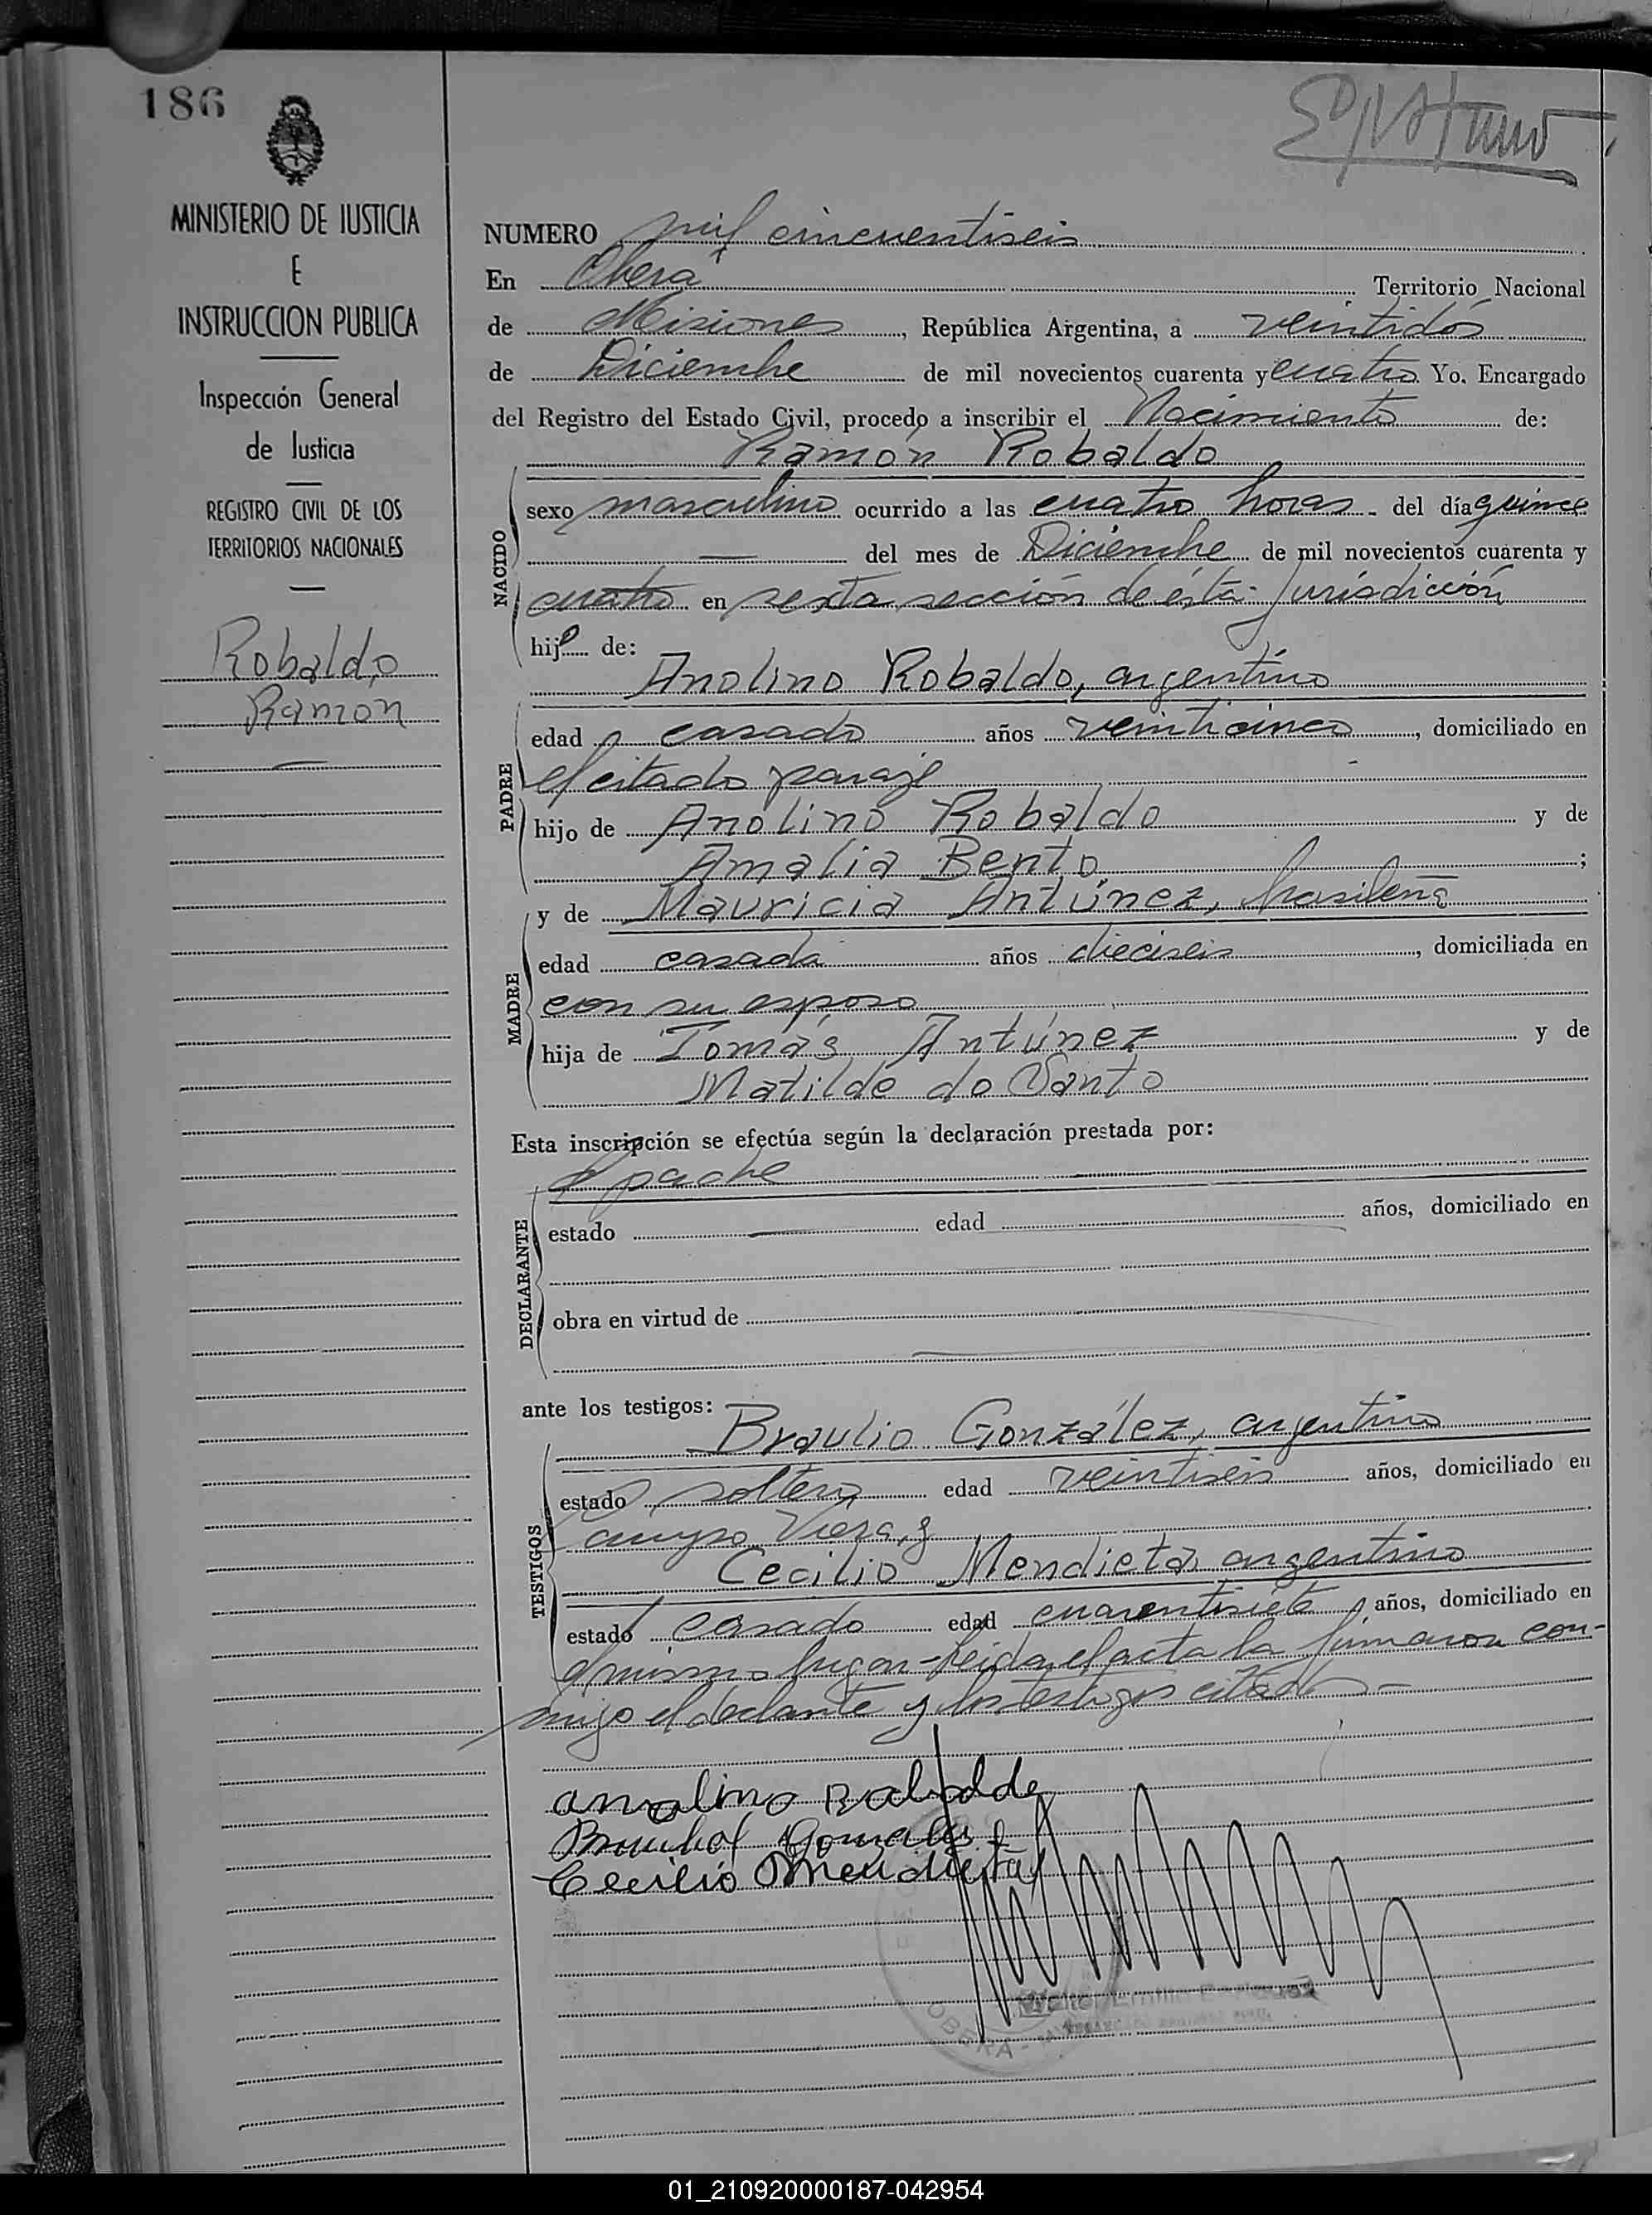 186
MINISTERIO DE JUSTICIA
E
INSTRUCCION PUBLICA
Inspección General
de Justicia
REGISTRO CIVIL DE LOS
TERRITORIOS NACIONALES
Robaldo
Ramón
NUMERO mil cincuentiseis
En Oberá Territorio Nacional
de Misiones, República Argentina, a veintidós
de Diciembre de mil novecientos cuarenta y cuatro Yo. Encargado
del Registro del Estado Civil, procedo a inscribir el Nacimiento de:
Ramón Robaldo
NACIDO
sexo masculino ocurrido a las cuatro horas - del día quince
del mes de Diciembre de mil novecientos cuarenta y
cuatro en sexta sección de ésta jurisdicción
hijo de:
Anolino Robaldo, argentino
PADRE
edad casado años veinticinco, domiciliado en
el citado paraje
hijo de Anolino Robaldo y de
Amalia Bento;
MADRE
y de Mauricia Antúnez, brasileña
edad casada años dieciseis, domiciliada en
con su esposo
hija de Tomás Antúnez y de
Matilde do Santo
Esta inscripción se efectúa según la declaración prestada por:
el padre
DECLARANTE
estado edad años, domiciliado en
obra en virtud de
ante los testigos:
Braulio González, argentino
TESTIGOS
estado soltero edad veintiseis años, domiciliado en
campo Viera, y
Cecilio Mendieta, argentino
estado casado edad cuarentisiete años, domiciliado en
el mismo lugar - Leida el acta la firmaron con-
migo el declante y los testigos citados -
Gonzales
Cecilio Mendieta
OBERA
01_210920000187-042954